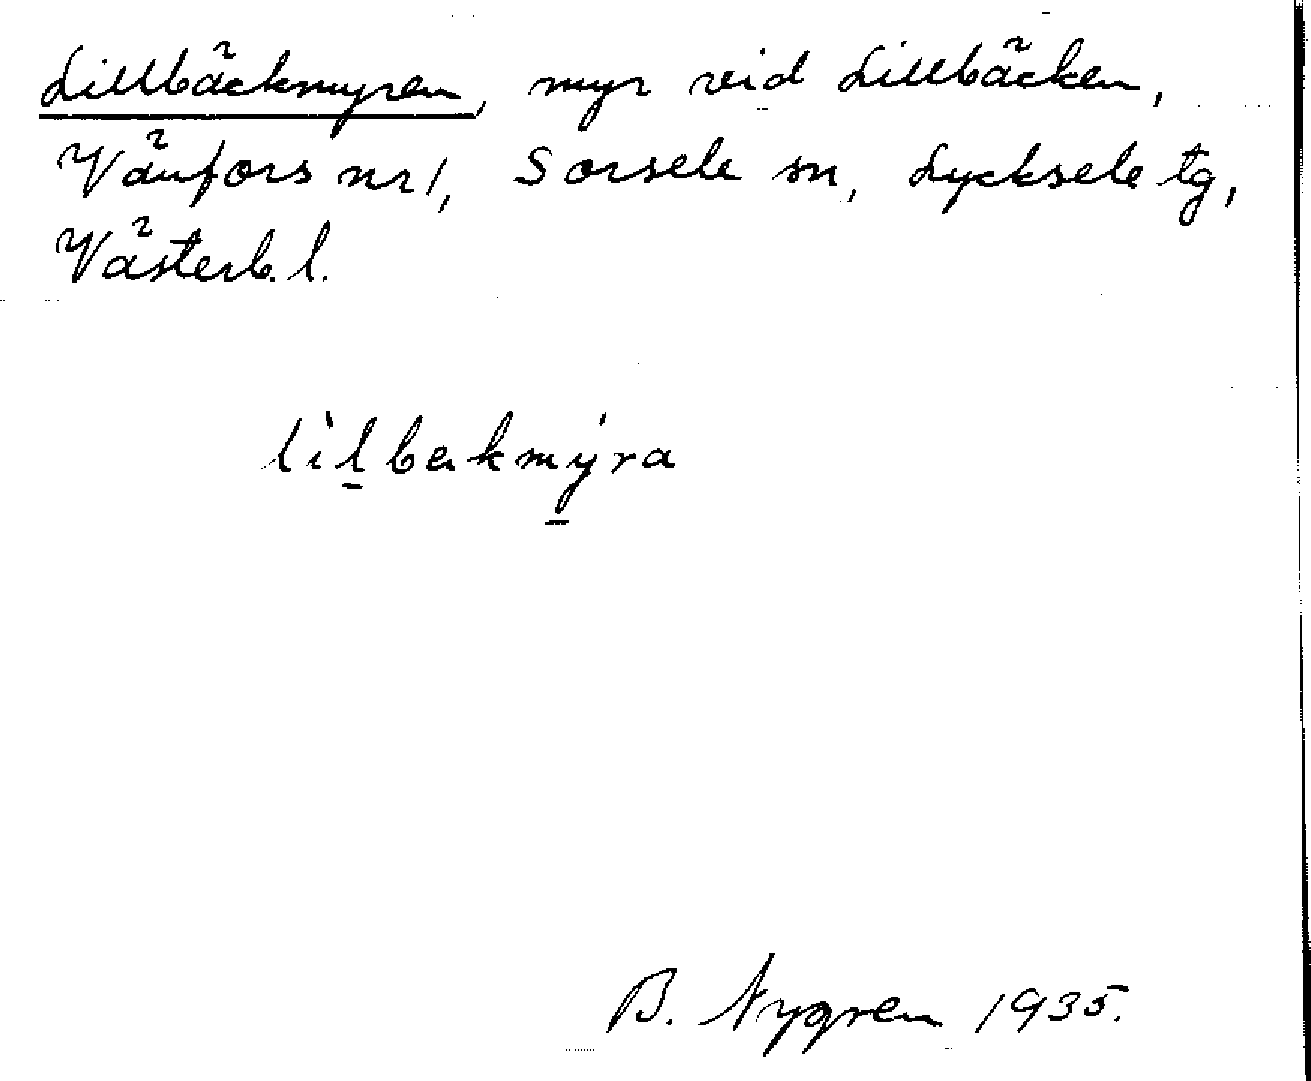 Lillbäckmyren, myr vid Lillbäcken,
Vänfors nr 1, Sorsele sn, Lycksele tg,
Västerb. l.
lìl̠bækmý̠ra
B. Nygren 1935.